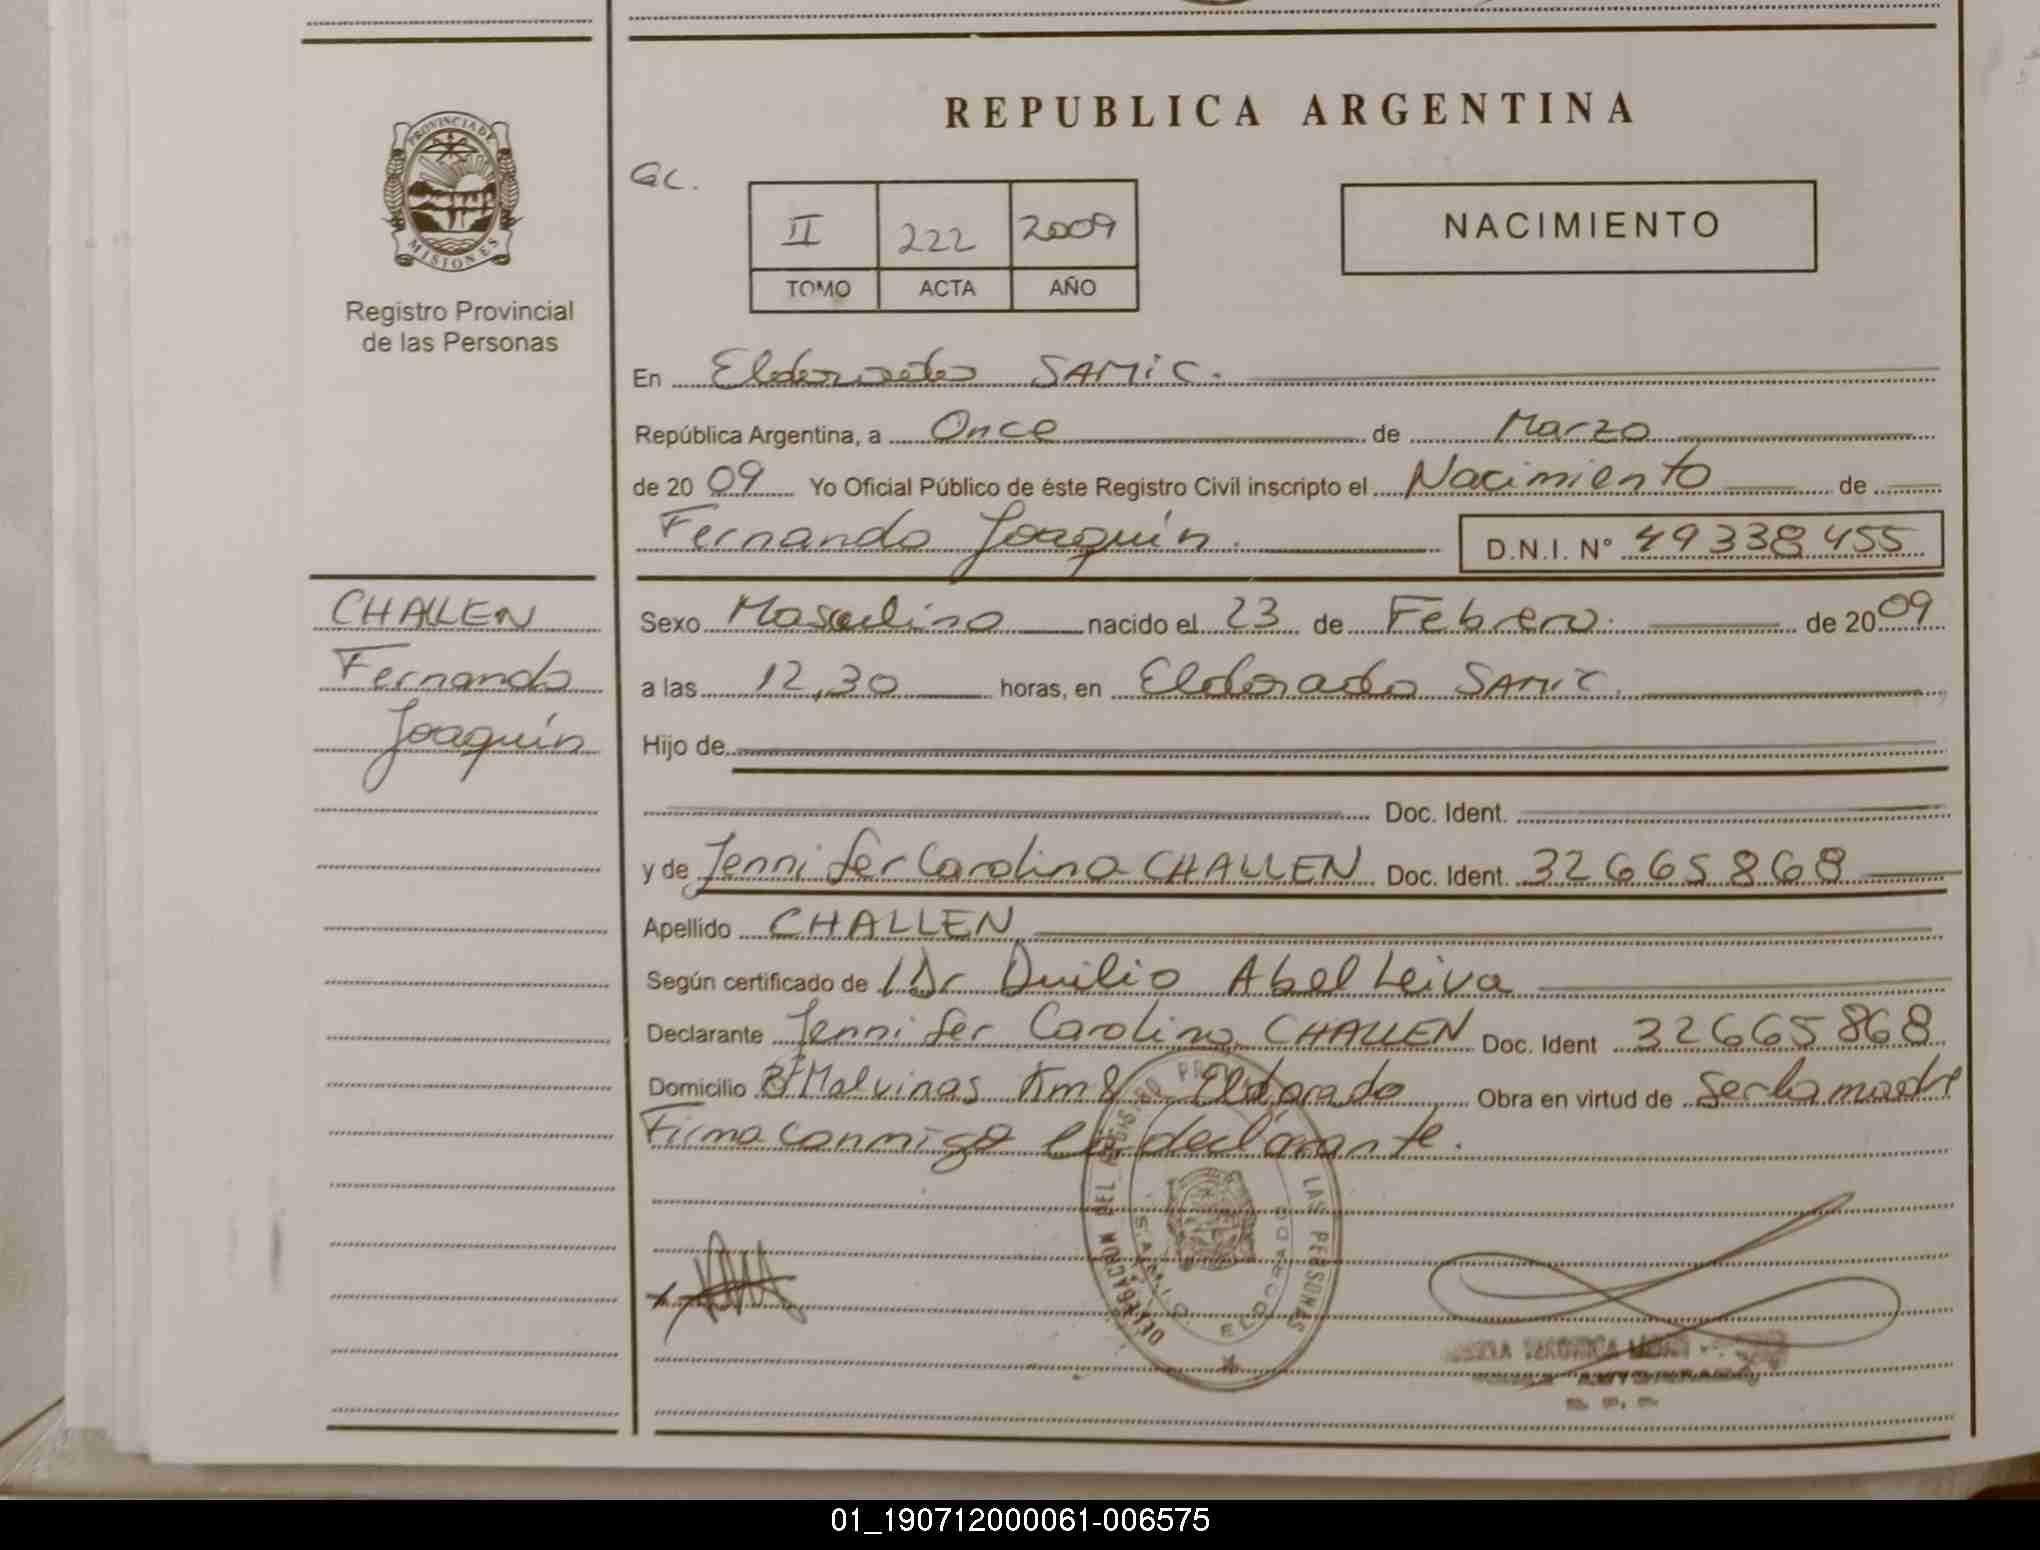 REPUBLICA ARGENTINA
PROVINCIA DE
MISIONES
Registro Provincial
de las Personas
Gc.
II 222 2009
TOMO ACTA AÑO
NACIMIENTO
En Eldorado SAMIC.
República Argentina, a Once de Marzo
de 20 09 Yo Oficial Público de éste Registro Civil inscripto el Nacimiento de
Fernando Joaquín. D.N.I. N° 49338455
CHALLEN
Fernando
Joaquín
Sexo Masculino nacido el 23 de Febrero. de 20 09
a las 12,30 horas, en Eldorado SAMIC.
Hijo de
Doc. Ident.
y de Jennifer Carolina CHALLEN Doc. Ident. 32665868
Apellido CHALLEN
Según certificado de Dr Duilio Abel Leiva
Declarante Jennifer Carolina CHALLEN Doc. Ident 32665868
Domicilio Bº Malvinas Km 8 Eldorado Obra en virtud de Ser la madre
Firma conmigo la declarante.
DELEGACION DEL REGISTRO LAS PERSONAS
ELDORADO
VERONICA
01_190712000061-006575